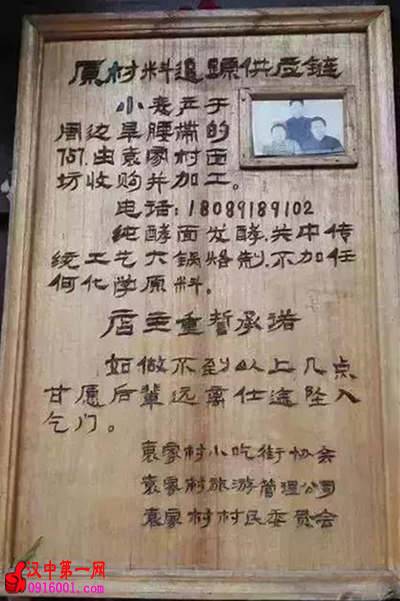 原材料追踪供应链
小麦产于
周边旱腰带的
757.由袁家村面
坊收购并加工。
电话:18089189102
纯酵面发酵.关中传
统工艺大锅烙制.不加任
何化学原料。
店主重誓承诺
如做不到以上几点
甘愿后辈远离仕途坠入
乞门。
袁家村小吃街协会
袁家村旅游管理公司
袁家村村民委员会
汉中第一网
0916001.com